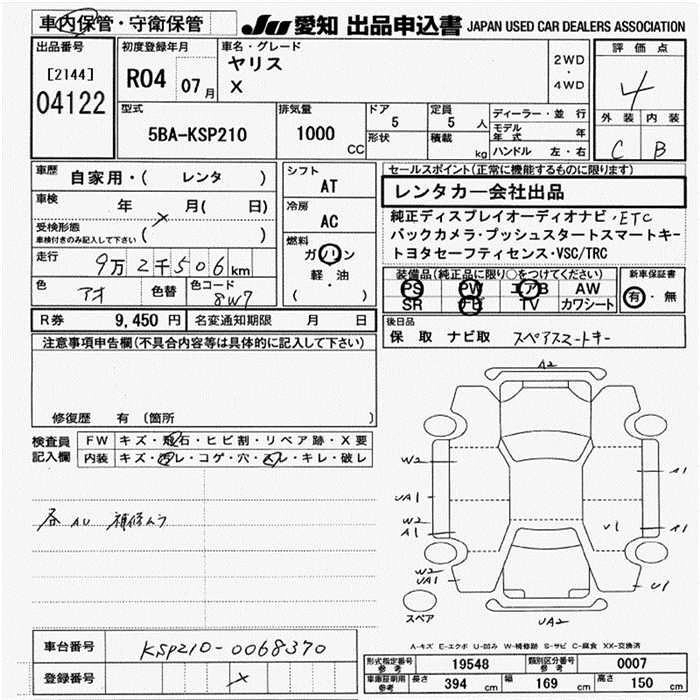 車内保管・守衛保管
JU 愛知 出品申込書 JAPAN USED CAR DEALERS ASSOCIATION
出品番号
[2144]
04122
初度登録年月
R04 07月
車名・グレード
ヤリス
X
2WD
・
4WD
評価点
4
外装 内装
C B
型式
5BA-KSP210
排気量
1000 CC
ドア 5
形状
定員 5 人
積載 kg
ディーラー・並行
モデル年式 年
ハンドル 左・右
車歴
自家用・( レンタ )
車検 年 月( 日)
受検形態
車検付きのみ記入して下さい ( )
走行 9万2千506km
色 アオ 色替 色コード 8W7
シフト
AT
冷房
AC
燃料
ガソリン
軽・油
( )
セールスポイント(正常に機能するものに限ります)
レンタカー会社出品
純正ディスプレイオーディオナビ・ETC
バックカメラ・プッシュスタートスマートキー
トヨタセーフティセンス・VSC/TRC
装備品(純正品に限り○をつけてください)
PS PW エアB AW
SR ナビ TV カワシート
新車保証書
有・無
R券 9,450円 名変通知期限 月 日
後日品
保 取 ナビ取 スペアスマートキー
注意事項申告欄(不具合内容等は具体的に記入して下さい)
修復歴 有 (箇所 )
検査員
記入欄
FW キズ・飛石・ヒビ割・リペア跡・X要
内装 キズ・汚レ・コゲ・穴・スレ・キレ・破レ
各 AU 補修ムラ
A2
W2
UA1
W2
A1
W2
UA1
A1
U1
A1
U1
UA2
スペア
A-キズ E-エクボ U-凹み W-補修跡 S-サビ C-腐食 XX-交換済
車台番号 KSP210-0068370
登録番号
形式指定番号 参考 19548 類別区分番号 参考 0007
車庫証明用 参考 長さ 394 cm 幅 169 cm 高さ 150 cm